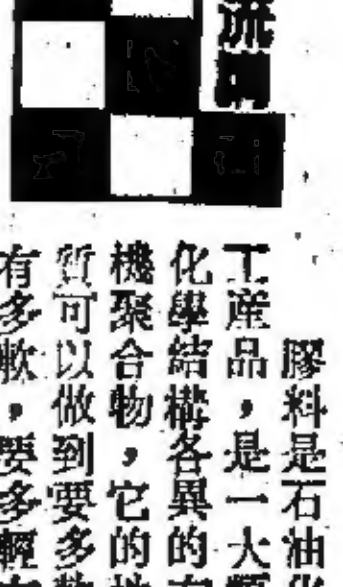 流
膠料是石油
工産品，是一大
化學結構各異的
機聚合物，它的
質可以做到要多
有多軟，要多輕